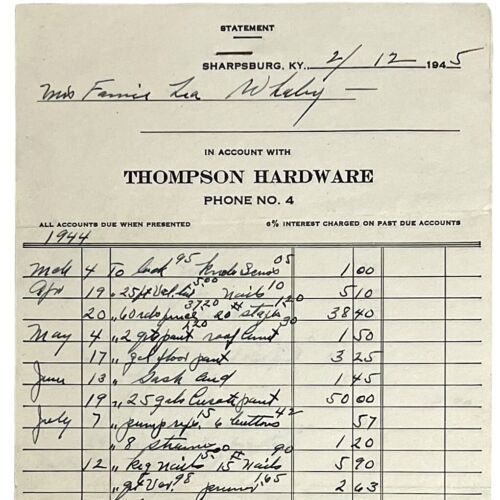 STATEMENT
SHARPSBURG, KY., 2/12 1945
Miss Fannie Lea Whaley
IN ACCOUNT WITH
THOMPSON HARDWARE
PHONE NO. 4
ALL ACCOUNTS DUE WHEN PRESENTED 6% INTEREST CHARGED ON PAST DUE ACCOUNTS
1944
Mch 4 To Lock 95 05 1 00
Apr 19 " 25 5.00 Nails 10 5 10
20 " 60 rds 37.20 20# staples 1.20 38 40
May 4 " 2 qts paint 1.20 roof 30 1 50
17 " gal floor paint 3 25
June 13 " Sash 1 45
19 " 25 gals paint 50 00
July 7 " pump 15 6 buttons 42 57
" 8 1 20
12 " Keg Nails 5.00 15# Nails 90 5 90
" qt Var. 98 1.65 2 63